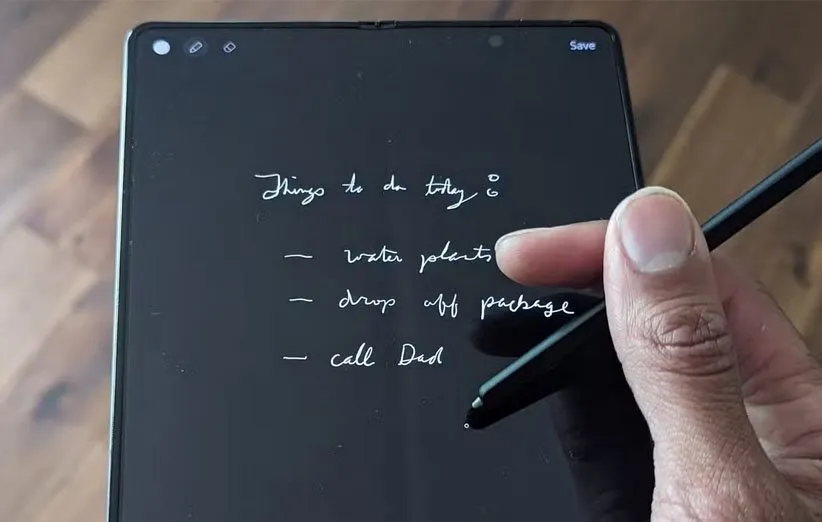 Save
Things to do today:
— water plants
— drop off package
— call Dad